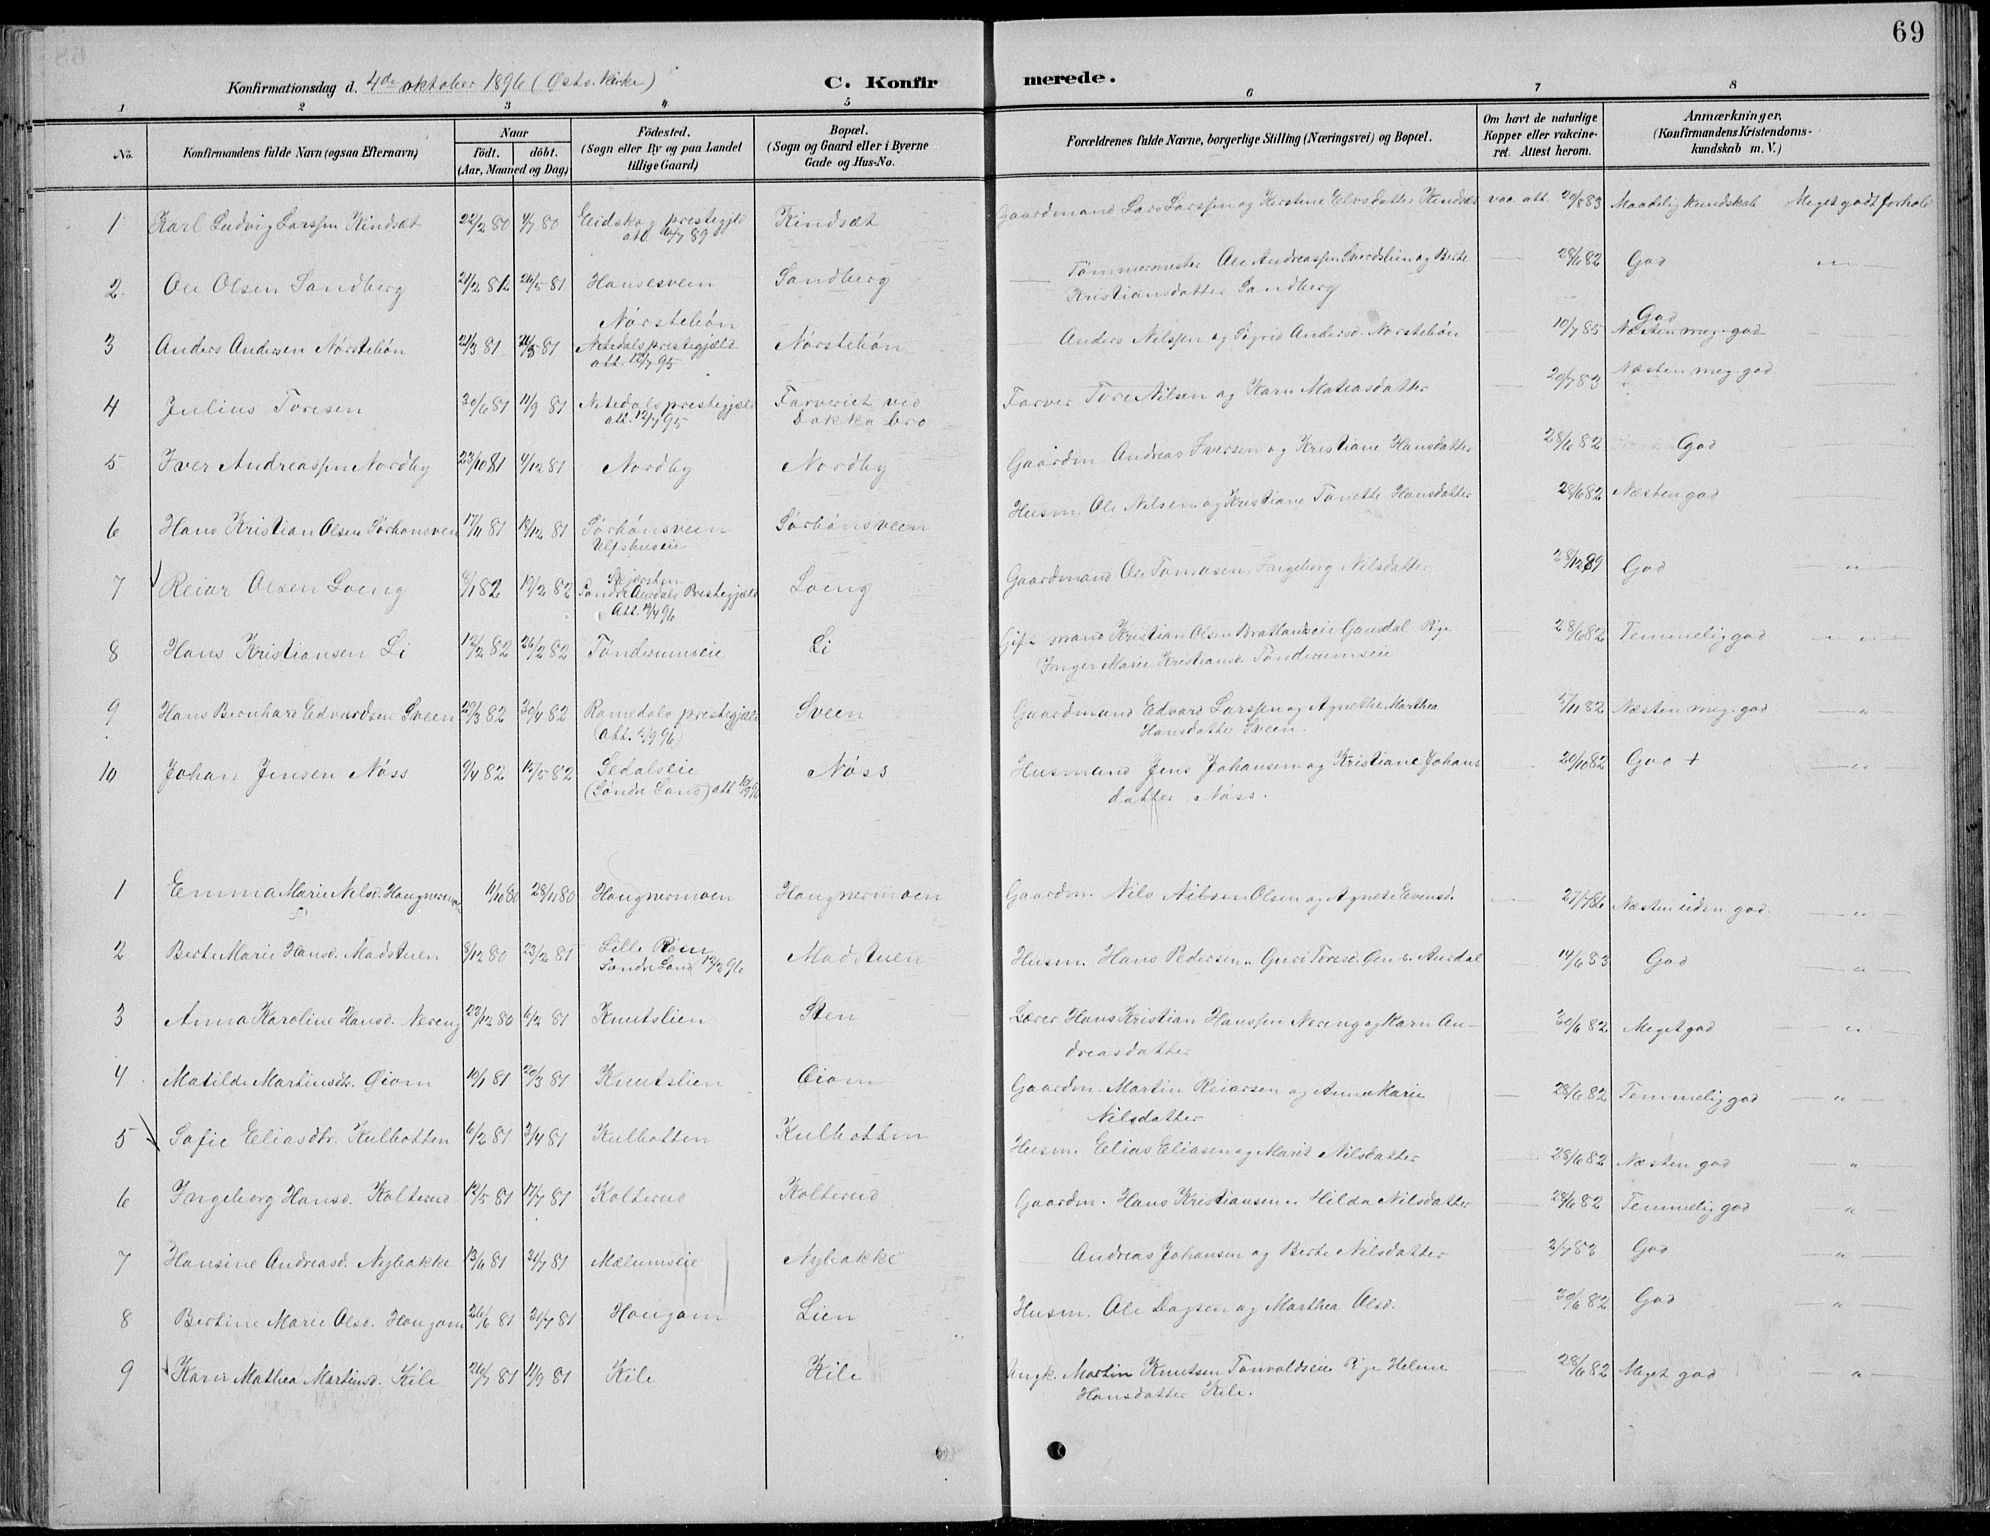 69
Konfirmationsdag d. 4de oktober 1896 (Østs. Kirke)
C. Konfirmerede.
1 2 3 4 5 6 7 8
No.
Konfirmandens fulde Navn (ogsaa Efternavn)
Naar
födt. döbt.
(Aar, Maaned og Dag)
Födested.
(Sogn eller By og paa Landet
tillige Gaard)
Bopæl.
(Sogn og Gaard eller i Byerne
Gade og Hus-No.
Forældrenes fulde Navne, borgerlige Stilling (Næringsvei) og Bopæl.
Om havt de naturlige
Kopper eller vakcine-
ret. Attest herom.
Anmærkninger,
(Konfirmandens Kristendoms-
kundskab m. V.)
1 Karl Ludvig Larssen Kindsæt 22/2 80 4/7 80 Eidskog prestegjeld Kindsæt Gaardmand Lars Larssen og Kerstine Elvsdatter Kindsæt vac att. 20/8 83 Maadelig kundskab Meget godt forhold
att. 89
2 Ole Olsen Sandberg 21/2 81 26/5 81 Hansesveen Sandberg Tømmermester Ole Andreassen og Berte 28/6 82 God
Kristiansdatter Sandberg
3 Anders Andersen Nørstebøn 21/3 81 26/5 81 Nørstebøn Nørstebøn Anders Nilssen og Sigrid Andersd. Nørstebøn 10/7 85 God
Næsten meg. god
Nitedals prestegjæld
att. 12/7 95
4 Julius Toresen 30/6 81 11/9 81 Nitedals prestegjæld Farveriet ved Farver Tore Nilsen og Karn Mateasdatter 20/7 83 Næsten meg. god
att. 12/7 95 Dokka bro
5 Iver Andreassen Nordby 23/10 81 4/12 81 Nordby Nordby Gaardm Andreas Iversen og Kristiane Hansdatter 28/6 82 God
6 Hans Kristian Olsen Sørbønsveen 17/11 81 18/12 81 Sørbønsveen Sørbønsveen Husm. Ole Nilsen og Kristiane Tonette Hansdatter 28/6 82 Næsten god
Ulfshuseie
7 Reiar Olsen Loeng 6/1 82 19/2 82 Skjærsten Loeng Gaardmand Ole Tomasen, Ingeborg Nilsdatter 28/12 89 God
Søndre Aurdals Prestegjæld
Att. 96
8 Hans Kristiansen Li 12/2 82 26/2 82 Tønderumseie Li Gift mand Kristian Olsen Bratlandseie Gausdal. Pige 28/6 82 Temmelig god
Inger Marie Kristiansd. Tønderumseie
9 Hans Bernhard Edvardsen Sveen 29/3 82 30/4 82 Romedals prestegjæld Sveen Gaardmand Edvard Larssen og Agnethe Marthea 5/11 82 Næsten meg. god
(att. 96) Hansdatter Sveen.
10 Johan Jensen Nøss 9/4 82 82 Nøss Husmand Jens Johansen og Kristiane Johans 20/10 82 God +
(Søndre Land) att datter Nøss.
1 Emma Marie Nilsd. Haugnermoen 11/10 80 28/11 80 Haugnermoen Haugnermoen Gaardm. Nils Nilsen Olsen og Agnete Evensd. 21/7 86 Næsten uden god.
2 Berte Marie Hansd. Madstuen 8/12 80 23/2 81 Lille Røen Madstuen Husm. Hans Pedersen " Guri Toresd. Aurdal 14/6 83 God
Søndre Land 12/2 96
3 Anna Karoline Hansd. Nereng 23/12 80 6/2 81 Knutslien Sten Lærer Hans Kristian Hanssen Nereng og Karn An- 30/6 82 Meget god
dreasdatter
4 Matilde Martinsdr. Øiom 10/1 81 20/3 81 Knutslien Øiom Gaardm. Martin Reiarsen og Anne Marie 28/6 82 Temmelig god
Nilsdatter
5 Sofie Eliasdtr. Kulhotten 6/2 81 3/4 81 Kulhotten Kulhotten Husm. Elias Eliasen og Marit Nilsdatter 28/6 82 Næsten god
6 Ingeborg Hansd. Kolterud 12/5 81 17/7 81 Kolterud Kolterud Gaardm. Hans Kristiansen " Hilda Nilsdatter 28/6 82 Temmelig god
7 Hansine Andreasd. Nybakke 13/6 81 31/7 81 Mælumseie Nybakke Andreas Johansen og Berte Nilsdatter 2/7 83 God
8 Bertine Marie Olsd. Haugom 26/6 81 31/7 81 Haugom Lien Husm. Ole Dagsen og Marthea Olsd. 30/6 82 God
9 Karn Mathea Martinsd. Kile 26/7 81 11/9 81 Kile Kile Ungk. Martin Knutsen Tonvoldseie Pige Helene 28/6 82 Meget god
Hansdatter Kile.